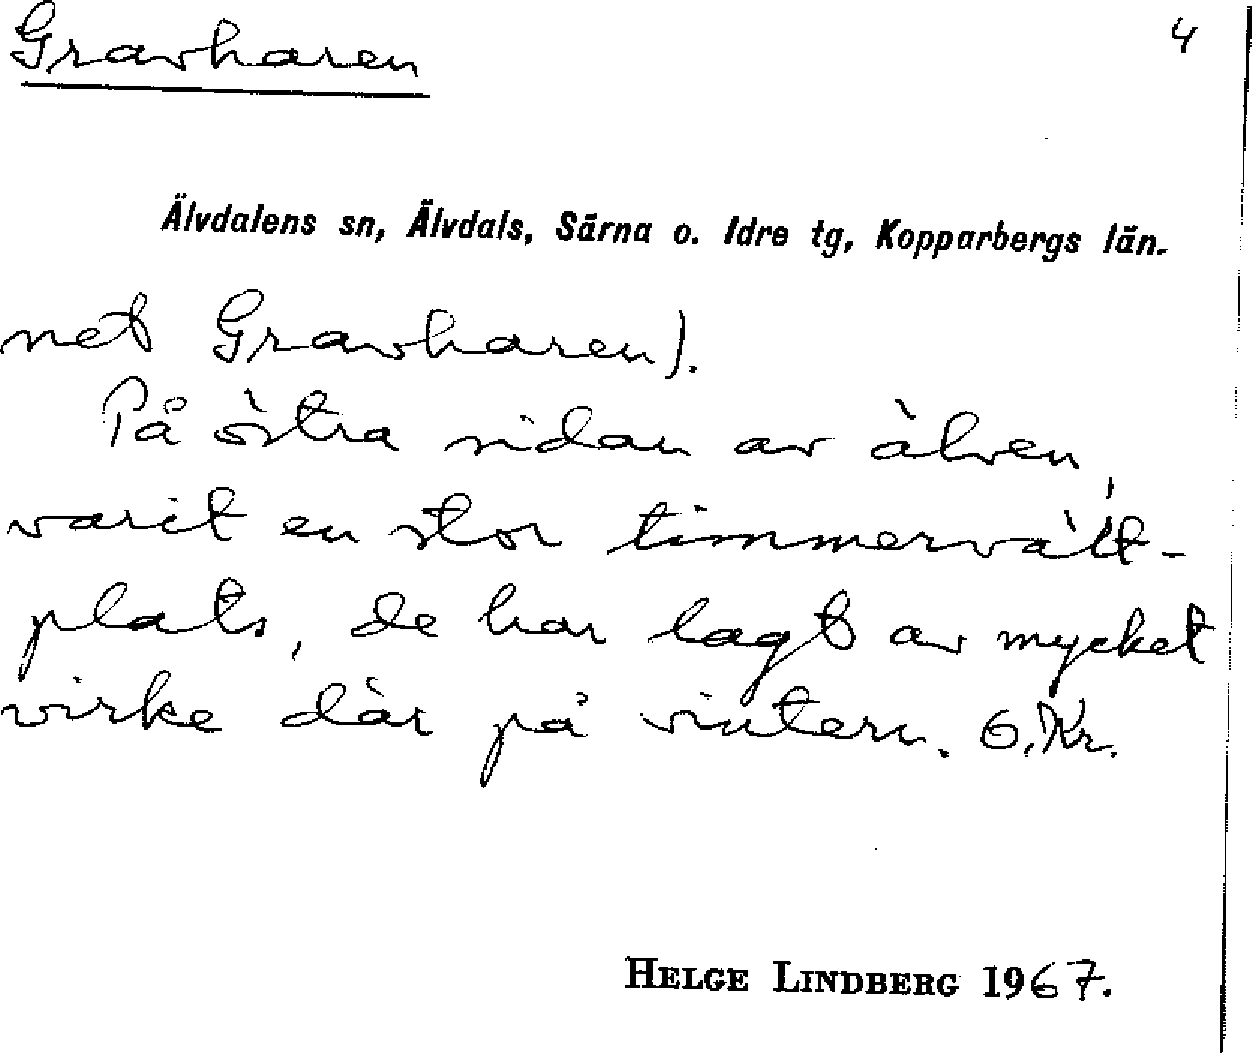 Gravharen 4
Älvdalens sn, Älvdals, Särna o. Idre tg, Kopparbergs län.
net Gravharen).
På östra sidan av älven,
varit en stor timmervält-
plats, de har lagt av mycket
virke där på vintern. G.Kr.
HELGE LINDBERG 1967.